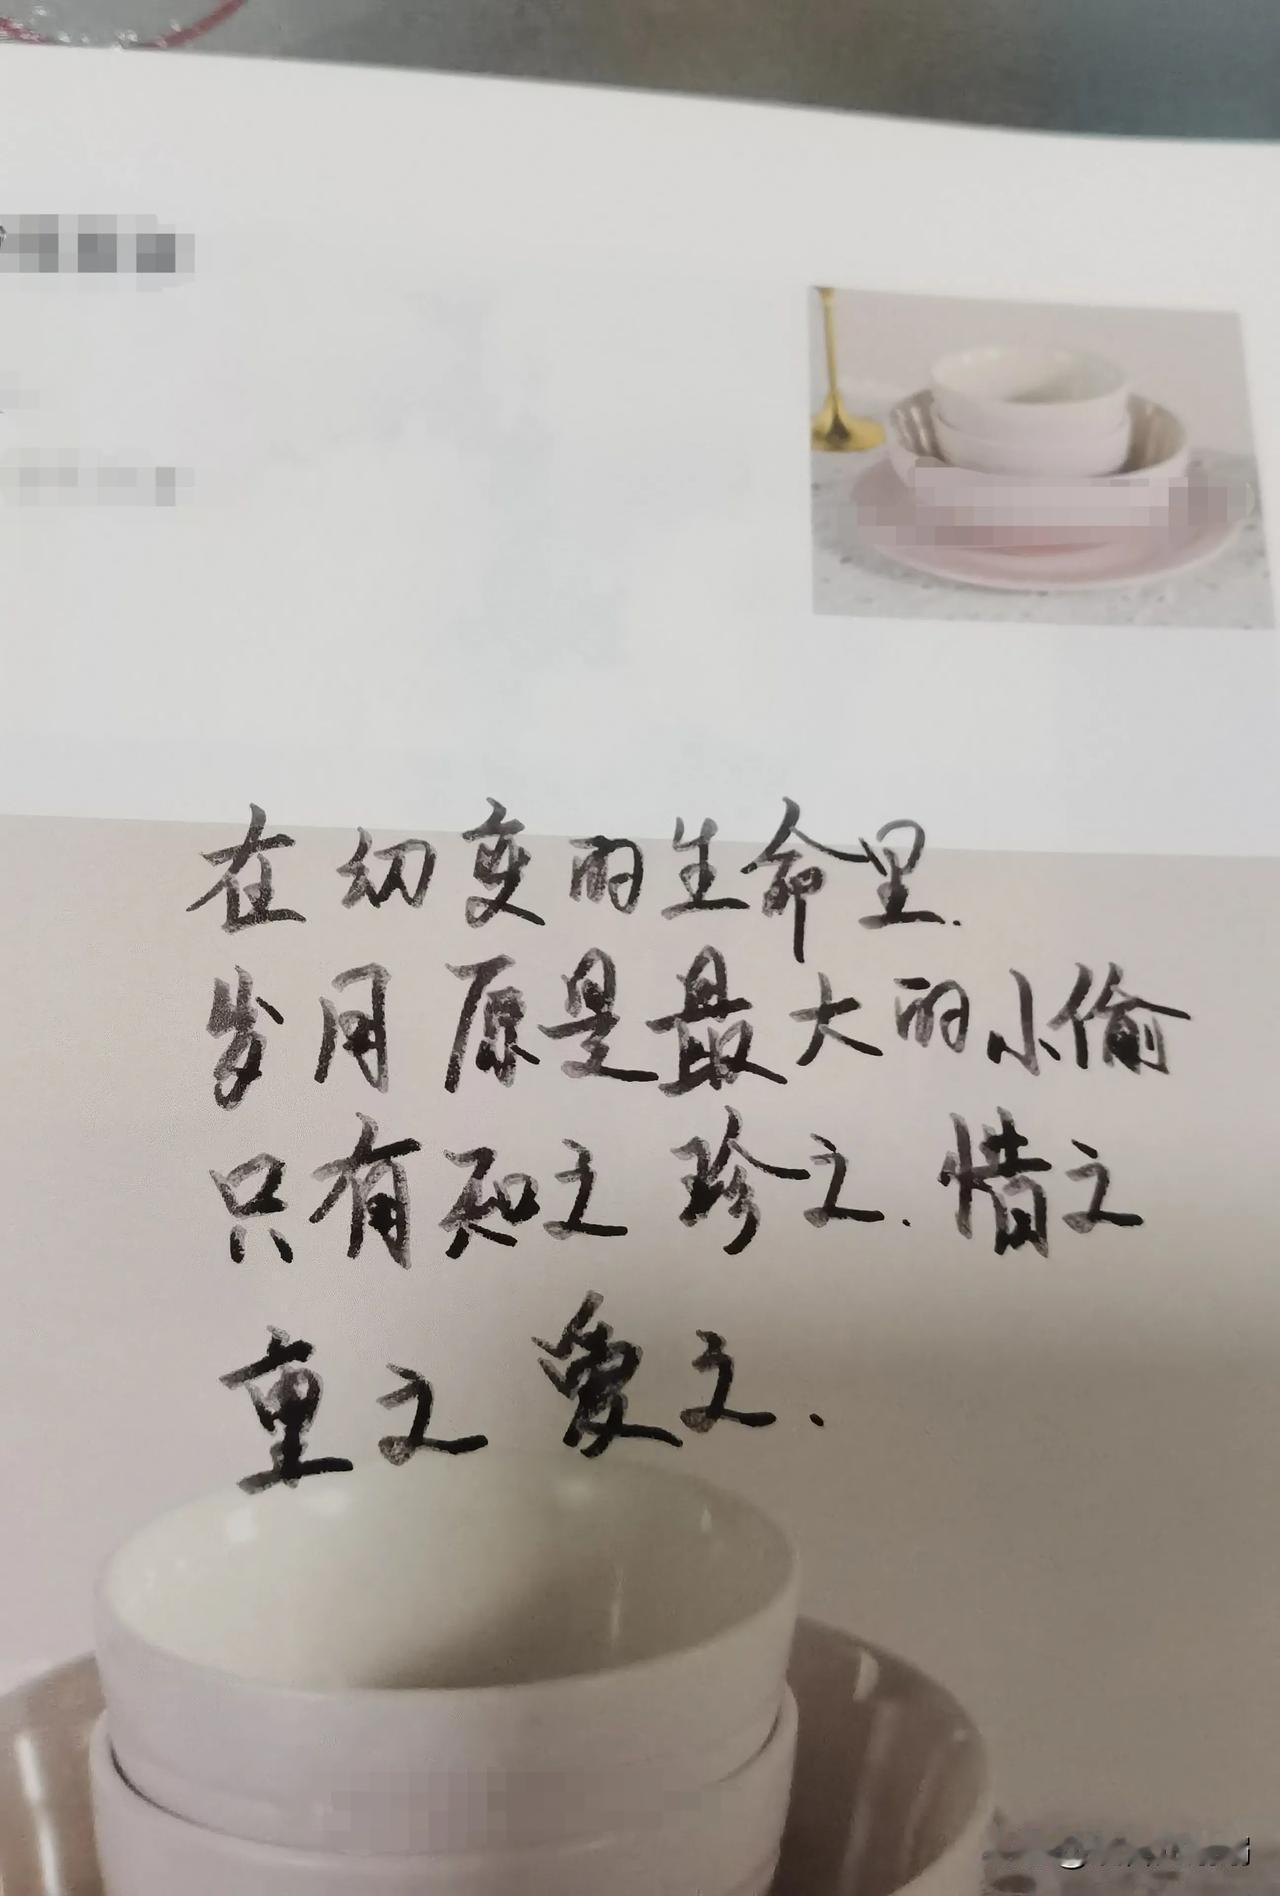 在幻变的生命里.
岁月原是最大的小偷
只有知之 珍之.惜之
重之 爱之.